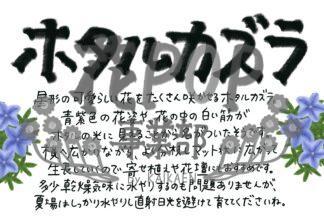 ホタルカズラ
星形の可愛らしい花をたくさん咲かせるホタルカズラ。
青紫色の花姿や、花の中の白い筋が
ホタルの光に見えることから名がついたそうです。
横に広がりながら、よう
広がって
生長していくので、寄せ植えや花壇にもおすすめです。
多少乾燥気味に水やりするのも問題ありませんが、
夏場はしっかり水やりし直射日光を避けて育ててくださいね。